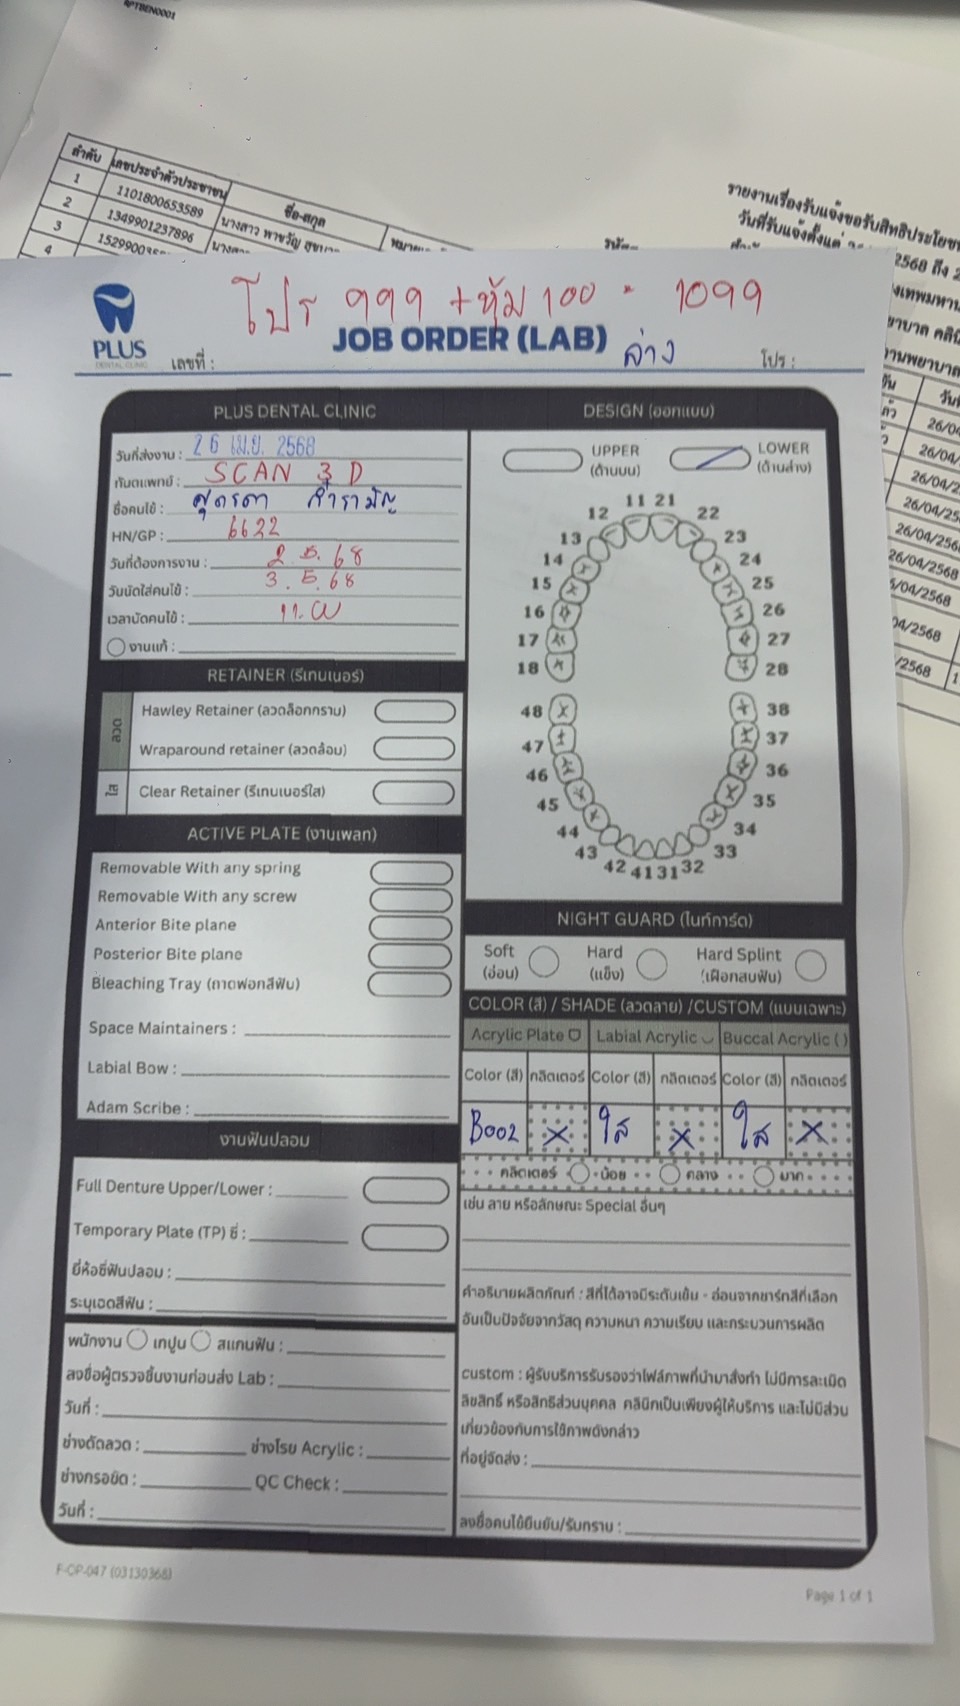 ลำดับ เลขประจำตัวประชาชน ชื่อ-สกุล
1 1101800653589 นางสาว
2 1349901237896
3
4
รายงานเรื่องรับแจ้งขอรับสิทธิประโยชน์
วันที่รับแจ้งตั้งแต่
2568 ถึง 2
26/04
26/04/256
26/04/2568
/04/2568
04/2568
/2568
โปร 999 + หุ้ม 100 = 1099
PLUS
DENTAL CLINIC
JOB ORDER (LAB) ล่าง
เลขที่ : โปร :
PLUS DENTAL CLINIC
วันที่ส่งงาน : 26 เม.ย. 2568
ทันตแพทย์ : SCAN 3 D
ชื่อคนไข้ :
HN/GP : 6622
วันที่ต้องการงาน : 2. 5. 68
วันนัดใส่คนไข้ : 3. 5. 68
เวลานัดคนไข้ : 11.00
งานแก้ :
RETAINER (รีเทนเนอร์)
ลวด
Hawley Retainer (ลวดล็อกกราม)
Wraparound retainer (ลวดล้อม)
ใส
Clear Retainer (รีเทนเนอร์ใส)
ACTIVE PLATE (งานเพลท)
Removable With any spring
Removable With any screw
Anterior Bite plane
Posterior Bite plane
Bleaching Tray (ถาดฟอกสีฟัน)
Space Maintainers :
Labial Bow :
Adam Scribe :
งานฟันปลอม
Full Denture Upper/Lower :
Temporary Plate (TP) ซี่ :
ยี่ห้อซี่ฟันปลอม :
ระบุเฉดสีฟัน :
พนักงาน เทปูน สแกนฟัน :
ลงชื่อผู้ตรวจชิ้นงานก่อนส่ง Lab :
วันที่ :
ช่างดัดลวด : ช่างโรย Acrylic :
ช่างกรอขัด : QC Check :
วันที่ :
DESIGN (ออกแบบ)
UPPER (ด้านบน)
LOWER (ด้านล่าง)
11 21
12 22
13 23
14 24
15 25
16 26
17 27
18 28
48 38
47 37
46 36
45 35
44 34
43 33
42 41 31 32
NIGHT GUARD (ไนท์การ์ด)
Soft (อ่อน)
Hard (แข็ง)
Hard Splint (เฝือกสบฟัน)
COLOR (สี) / SHADE (ลวดลาย) /CUSTOM (แบบเฉพาะ)
Acrylic Plate Labial Acrylic Buccal Acrylic ( )
Color (สี) กลิตเตอร์ Color (สี) กลิตเตอร์ Color (สี) กลิตเตอร์
B002 X ใส X ใส X
กลิตเตอร์ น้อย กลาง มาก
เช่น ลาย หรือลักษณะ Special อื่นๆ
คำอธิบายผลิตภัณฑ์ : สีที่ได้อาจมีระดับเข้ม - อ่อนจากชาร์ทสีที่เลือก
อันเป็นปัจจัยจากวัสดุ ความหนา ความเรียบ และกระบวนการผลิต
custom : ผู้รับบริการรับรองว่าไฟล์ภาพที่นำมาสั่งทำ ไม่มีการละเมิด
ลิขสิทธิ์ หรือสิทธิส่วนบุคคล คลินิกเป็นเพียงผู้ให้บริการ และไม่มีส่วน
เกี่ยวข้องกับการใช้ภาพดังกล่าว
ที่อยู่จัดส่ง :
ลงชื่อคนไข้ยืนยัน/รับทราบ :
F-OP-047 (03130368)
Page 1 of 1